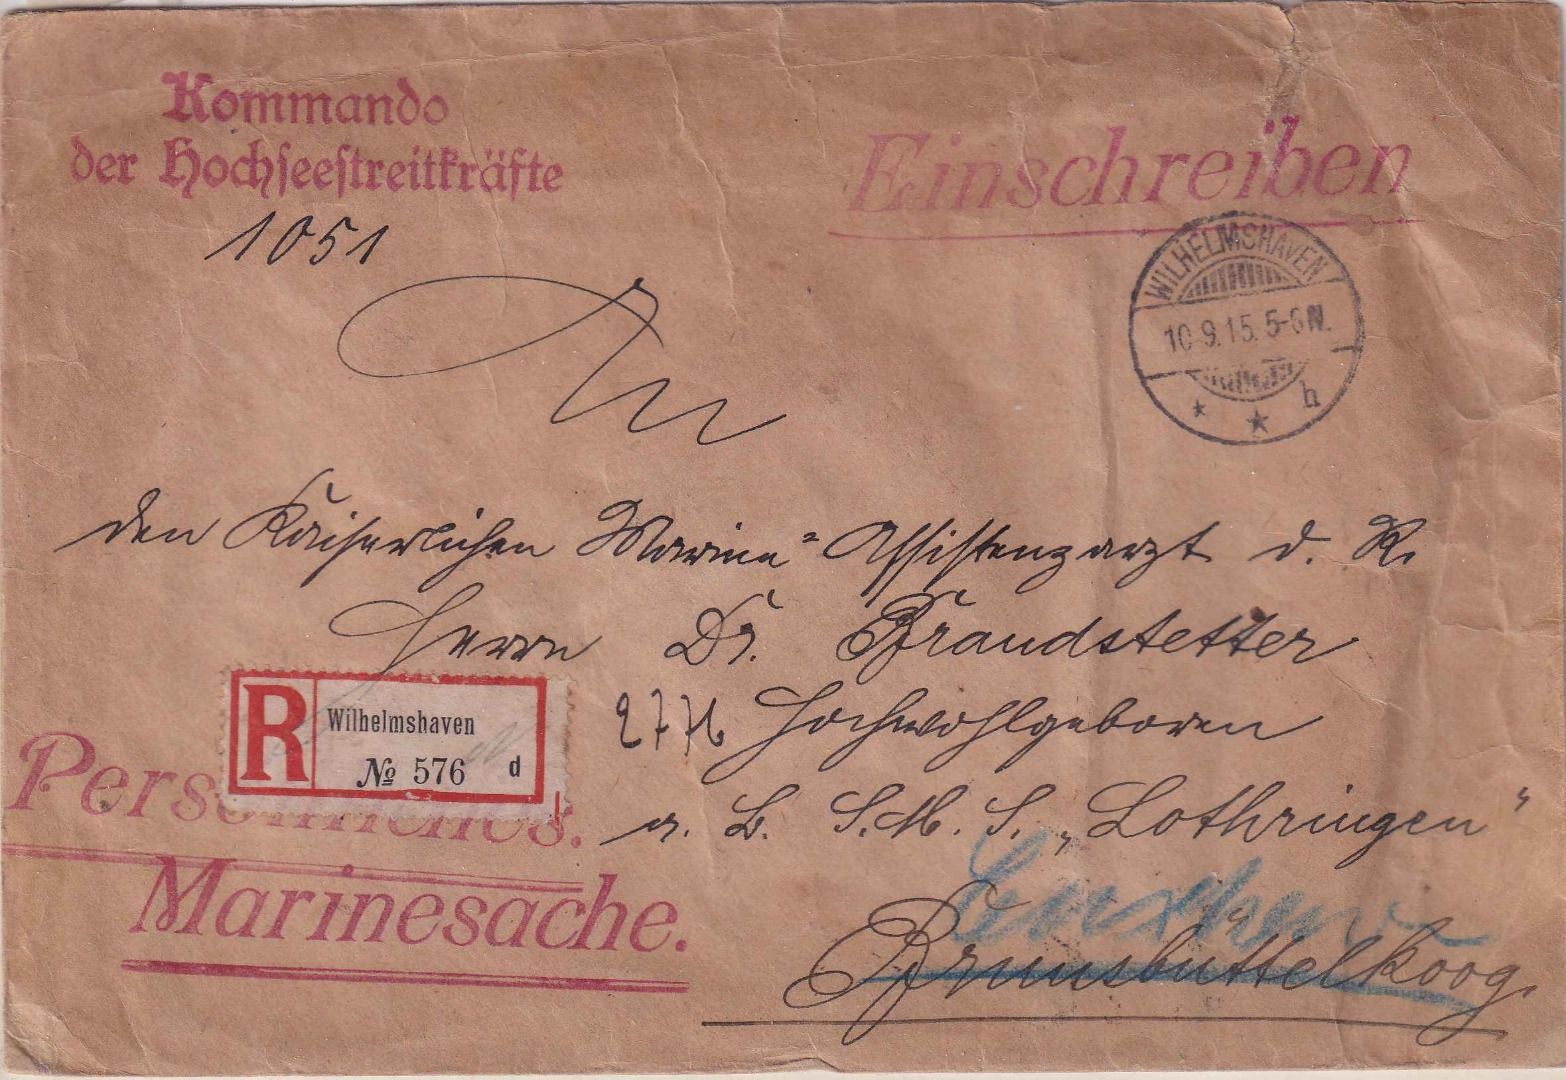 Kommando
der Hochseestreitkräfte
1051
Einschreiben
WILHELMSHAVEN
10.9.15. 5-6 N.
* * h
An
den Kaiserlichen Marine=Assistenzarzt d. R.
Herrn Dr. Brandstetter
Hochwohlgeboren
a. B. S.M.S. „Lothringen"
Cuxhaven
Brunsbüttelkoog.
R
Wilhelmshaven
№ 576 d
Persönliches.
Marinesache.